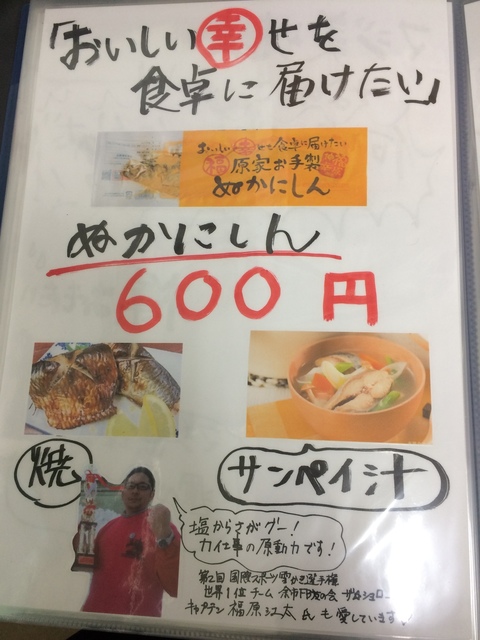 「おいしい幸せを
食卓に届けたい」
おいしい幸せを食卓に届けたい
福原家お手製
ぬかにしん
ぬかにしん
600円
焼
サンペイ汁
塩からさがグー!
力仕事の原動力です!
第2回 国際スポーツ雪かき選手権
世界1位チーム
キャプテン 福原 太氏も愛しています